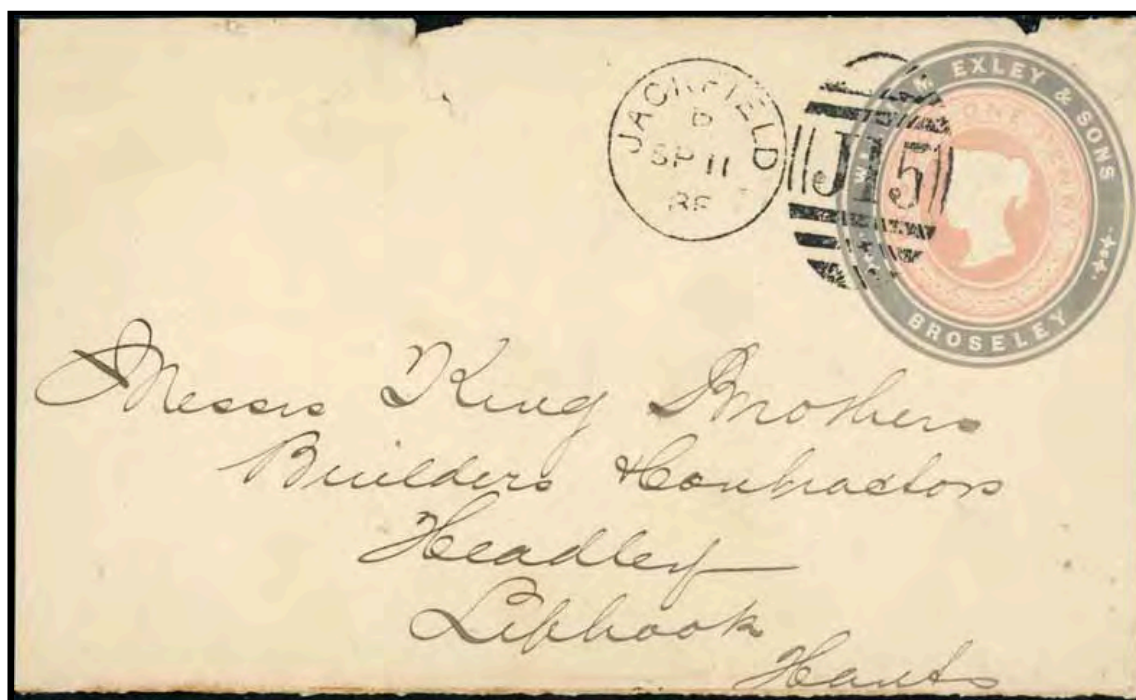 JACKFIELD
B
SP 11
J15
WILLIAM EXLEY & SONS
BROSELEY
ONE PENNY
Messrs King Brothers
Builders & Contractors
Headley
Liphook
Hants